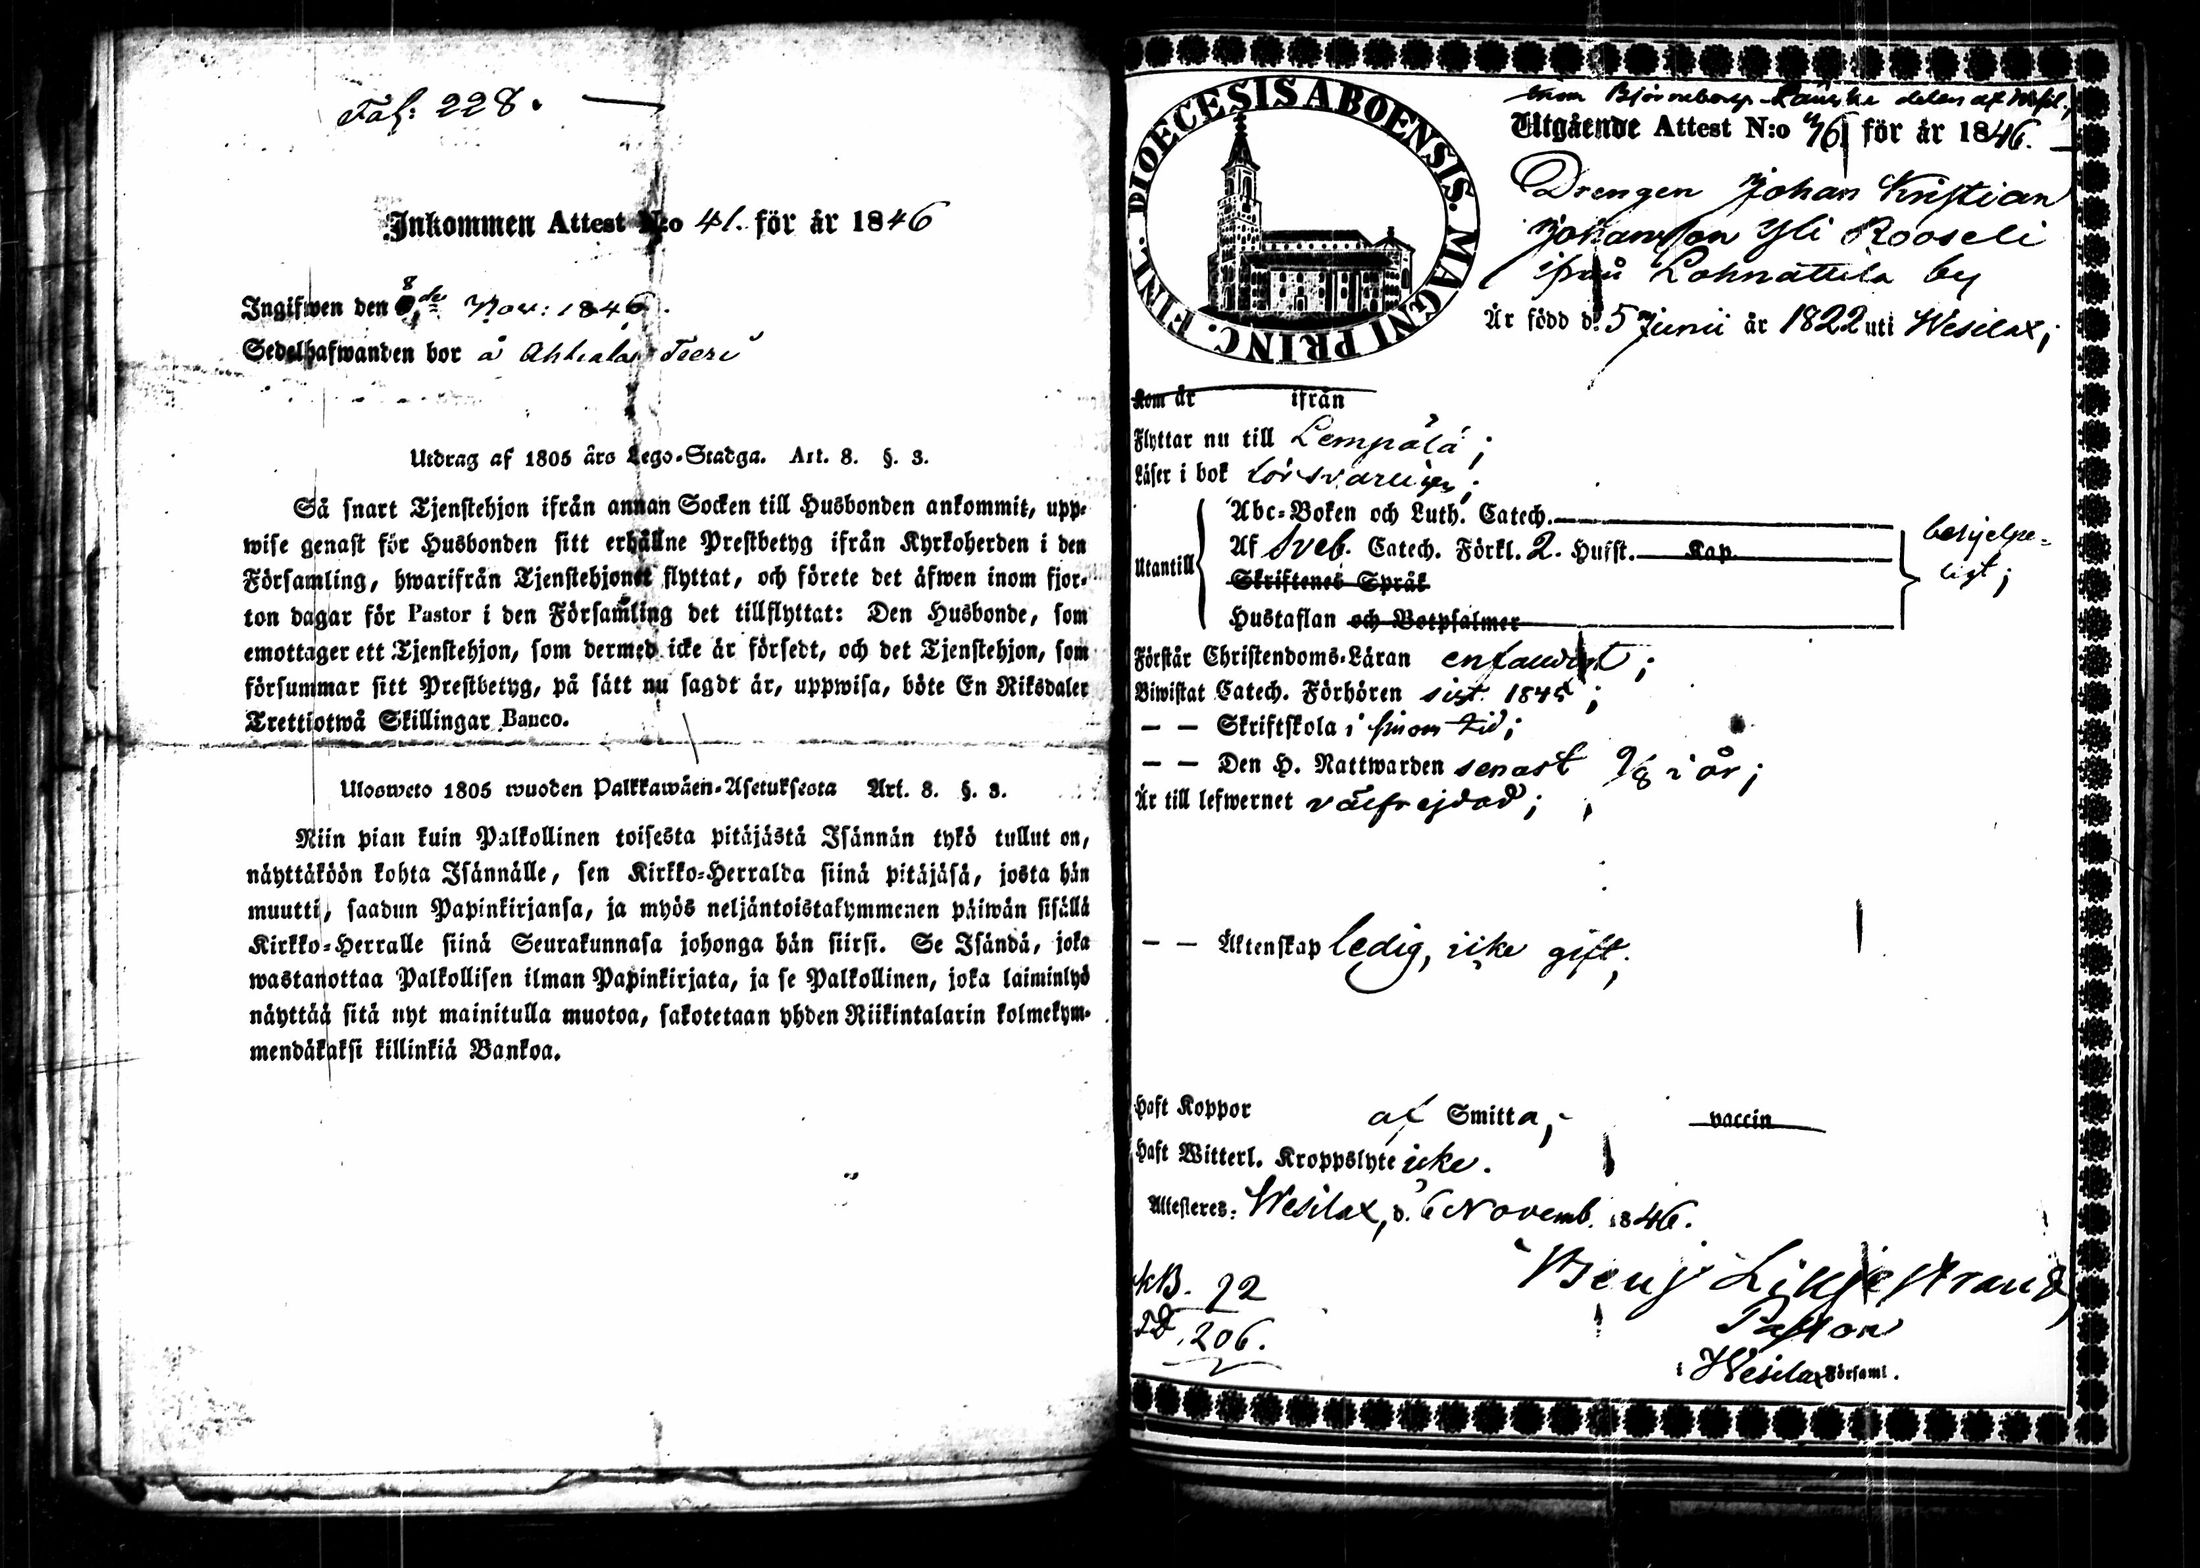 Fol: 228.
Inkommen Attest N:o 41. för år 1846
Ingifwen den 8de Nov: 1846.
Sedelhafwanden bor å Ahtiala Teeri
Utdrag af 1805 års Lego-Stadga. Art. 8. §. 3.
Så snart Tjenstehjon ifrån annan Socken till Husbonden ankommit, upp-
wise genast för Husbonden sitt erhållne Prestbetyg ifrån Kyrkoherden i den
Församling, hwarifrån Tjenstehjonet flyttat, och förete det äfwen inom fjor-
ton dagar för Pastor i den Församling det tillflyttat: Den Husbonde, som
emottager ett Tjenstehjon, som dermed icke är försedt, och det Tjenstehjon, som
försummar sitt Prestbetyg, på sätt nu sagdt är, uppwisa, böte En Riksdaler
Trettiotwå Skillingar Banco.
Ulosweto 1805 wuoden Palkkawäen-Asetuksesta Art. 8. §. 3.
Niin pian kuin Palkollinen toisesta pitäjästä Isännän tykö tullut on,
näyttäköön kohta Isännälle, sen Kirkko-Herralda siinä pitäjäsä, josta hän
muutti, saadun Papinkirjansa, ja myös neljäntoistakymmenen päiwän sisällä
Kirkko-Herralle siinä Seurakunnasa johonga hän siirsi. Se Isändä, joka
wastanottaa Palkollisen ilman Papinkirjata, ja se Palkollinen, joka laiminlyö
näyttää sitä nyt mainitulla muotoa, sakotetaan yhden Riikintalarin kolmekym-
mendäkaksi killinkiä Bankoa.
DIOECESIS ABOENSIS. MAGNI PRINC. FINL.
inom Björneborgs Länske delen af Wesil.
Utgående Attest N:o 76 för år 1846.
Drengen Johan Kristian
Johansson Yli Rooseli
ifrån Lahnattila by
Är född d. 5 Junii år 1822 uti Wesilax;
Kom år ifrån
Flyttar nu till Lempälä;
Läser i bok försvarligen;
Utantill
Abc-Boken och Luth. Catech.
Af Sveb. Catech. Förkl. 2. Hufst. Kap.
Skriftenes Språk
Hustaflan och Botpsalmer
behjelpe-
ligt;
Förstår Christendoms-Läran enfaldigt;
Biwistat Catech. Förhören sist 1845;
— — Skriftskola i sinom tid;
— — Den H. Nattwarden senast 9/8 i år;
Är till lefwernet välfrejdad;
— — Äktenskap ledig, icke gift;
Haft Koppor af Smitta; vaccin
Haft Witterl. Kroppslyte icke.
Attesteres: Wesilax, d. 6 Novemb. 1846.
KB. 22
206.
Benj Liljestrand
Pastor
i Wesilax Församl.